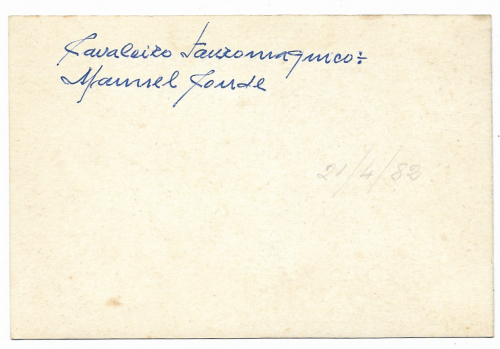 Cavaleiro Tauromaquico:
Manuel Conde
21/4/82